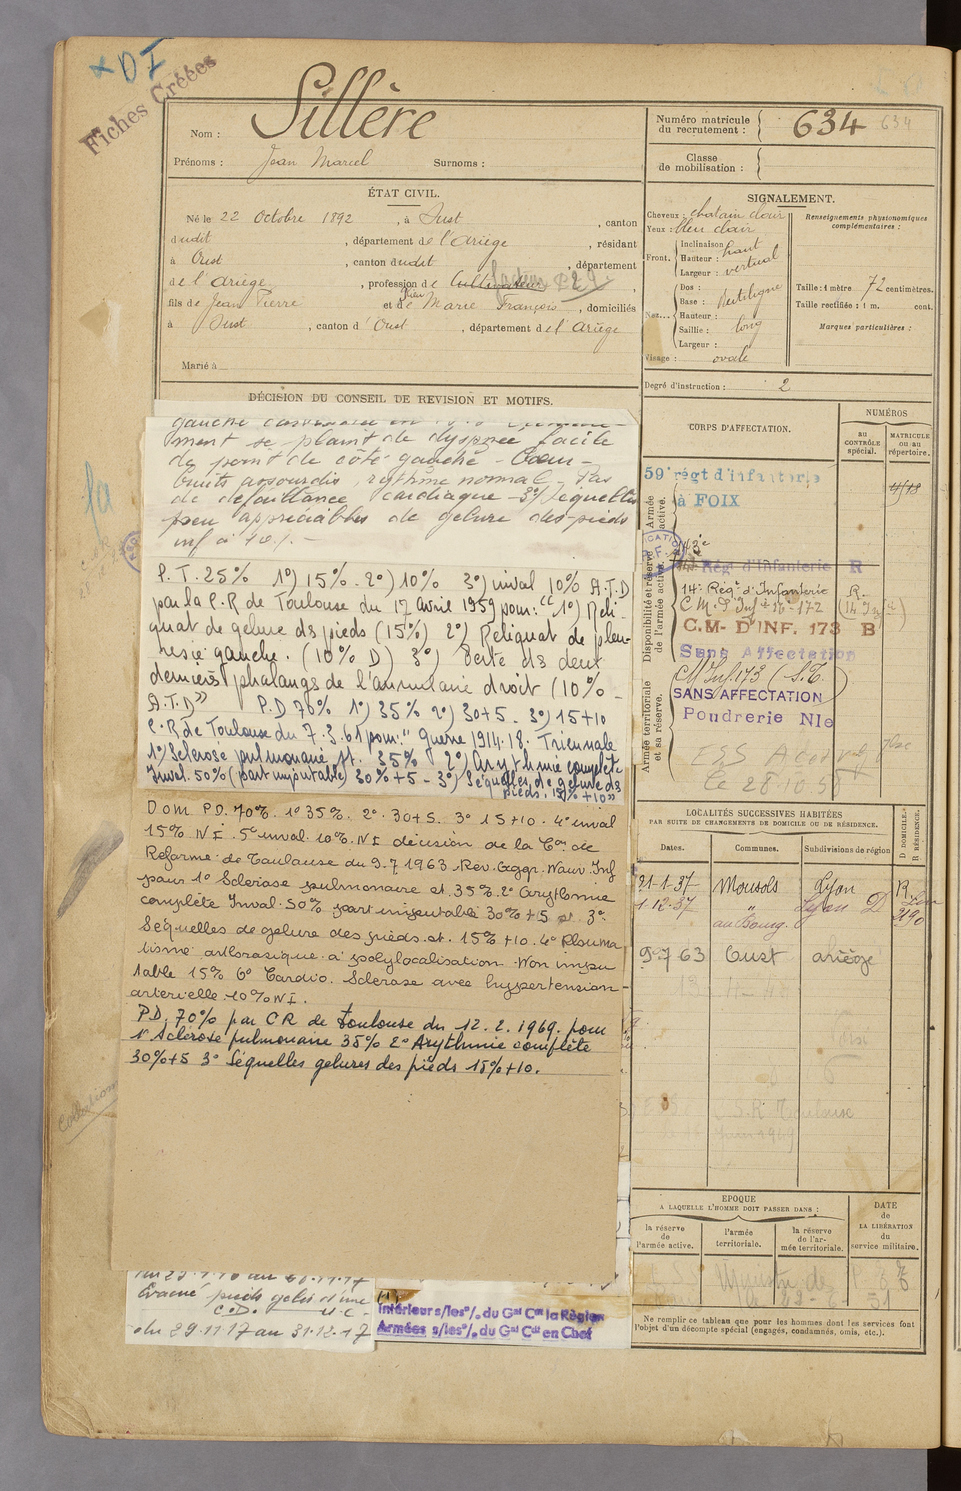 DI
Fiches Créées
Nom : Sillère
Prénoms : Jean Marcel Surnoms :
ÉTAT CIVIL.
Né le 22 Octobre 1892, à Oust, canton
dudit, département de l'Ariège, résidant
à Oust, canton dudit, département
de l'Ariège, profession de Cultivateur facteur
fils de Jean Pierre et de Marie Françoise, domiciliés
à Oust, canton d'Oust, département de l'Ariège
Marié à
DÉCISION DU CONSEIL DE REVISION ET MOTIFS.
ment se plaint de dyspnée facile
de point de côté gauche - Cœur -
bruits assourdis, rythme normal. Pas
de défaillance cardiaque - 3°) Séquelles
peu appréciables de gelure des pieds
inf à 10%.-
P.T. 25% 1°) 15% - 2°) 10% 3°) inval 10% A.T.D
par la C.R de Toulouse du 17 avril 1959 pour: "1°) Reli-
quat de gelure ds pieds (15%) 2°) Reliquat de pleu-
résie gauche. (10% D) 3°) Perte ds deux
dernières phalangs de l'annulaire droit (10% -
A.T.D" P.D 70% 1°) 35% 2°) 30+5 - 3°) 15+10
C.R de Toulouse du 7.3.61 pour: "Guerre 1914.18. Triennale
1°) Sclérose pulmonaire st. 35% 2°) Arythmie complète
Inval. 50% (part imputable) 30%+5 - 3°) Séquelles de gelure ds
pieds. 15%+10"
Dom. P.D. 70%. 1° 35%. 2°. 30+5. 3° 15+10. 4° inval
15% N.I. 5° inval. 10% N.I décision de la Con de
Réforme de Toulouse du 9.7.1963 Rev. Aggr. Nouv. Inf
pour 1° Sclérose pulmonaire st. 35% 2° Arythmie
complète Inval. 50% part imputable 30%+5 st 3°
Séquelles de gelure des pieds st. 15%+10. 4° Rhuma
tisme arthrosique à polylocalisation. Non impu
table 15% 6° Cardio. Sclérose avec hypertension-
artérielle. 10% N.I.
P.D. 70% par C R de Toulouse du 12.2.1969. pour
1° Sclérose pulmonaire 35% 2° Arythmie complète
30%+5 3° Séquelles gelures des pieds 15%+10.
Evacué pieds gelés
du 29.11.17 au 31.12.17
Intérieur s/les o/o du Gal Ct la Région
Armées s/les o/o du Gal Ct en Chef
Collection
Numéro matricule du recrutement : 634 634
Classe de mobilisation :
SIGNALEMENT.
Cheveux : chatain clair
Yeux : bleu clair
Front. Inclinaison :
Hauteur : haut
Largeur : vertical
Nez... Dos :
Base : Rectiligne
Hauteur :
Saillie : long
Largeur :
Visage : ovale
Renseignements physionomiques complémentaires :
Taille : 1 mètre 72 centimètres.
Taille rectifiée : 1 m. cent.
Marques particulières :
Degré d'instruction : 2
CORPS D'AFFECTATION.
NUMÉROS
au CONTRÔLE spécial.
MATRICULE ou au répertoire.
Armée active.
59e régt d'infanterie
à FOIX
Disponibilité et réserve de l'armée active.
Régt d'Infanterie R
14e Régt d'Infanterie R.
C.M. D'INF. 173 B
Sans Affectation
Armée territoriale et sa réserve.
SANS AFFECTATION
Poudrerie Nle
LOCALITÉS SUCCESSIVES HABITÉES
PAR SUITE DE CHANGEMENTS DE DOMICILE OU DE RÉSIDENCE.
Dates. Communes. Subdivisions de région.
D DOMICILE. R RÉSIDENCE.
21-1-37 Monsols Lyon R
1-12-37 " Lyon D
au Bourg.
9.7.63 Oust Ariège
EPOQUE
A LAQUELLE L'HOMME DOIT PASSER DANS :
la réserve de l'armée active.
l'armée territoriale.
la réserve de l'armée territoriale.
DATE de LA LIBÉRATION du service militaire.
Ne remplir ce tableau que pour les hommes dont les services font
l'objet d'un décompte spécial (engagés, condamnés, omis, etc.).